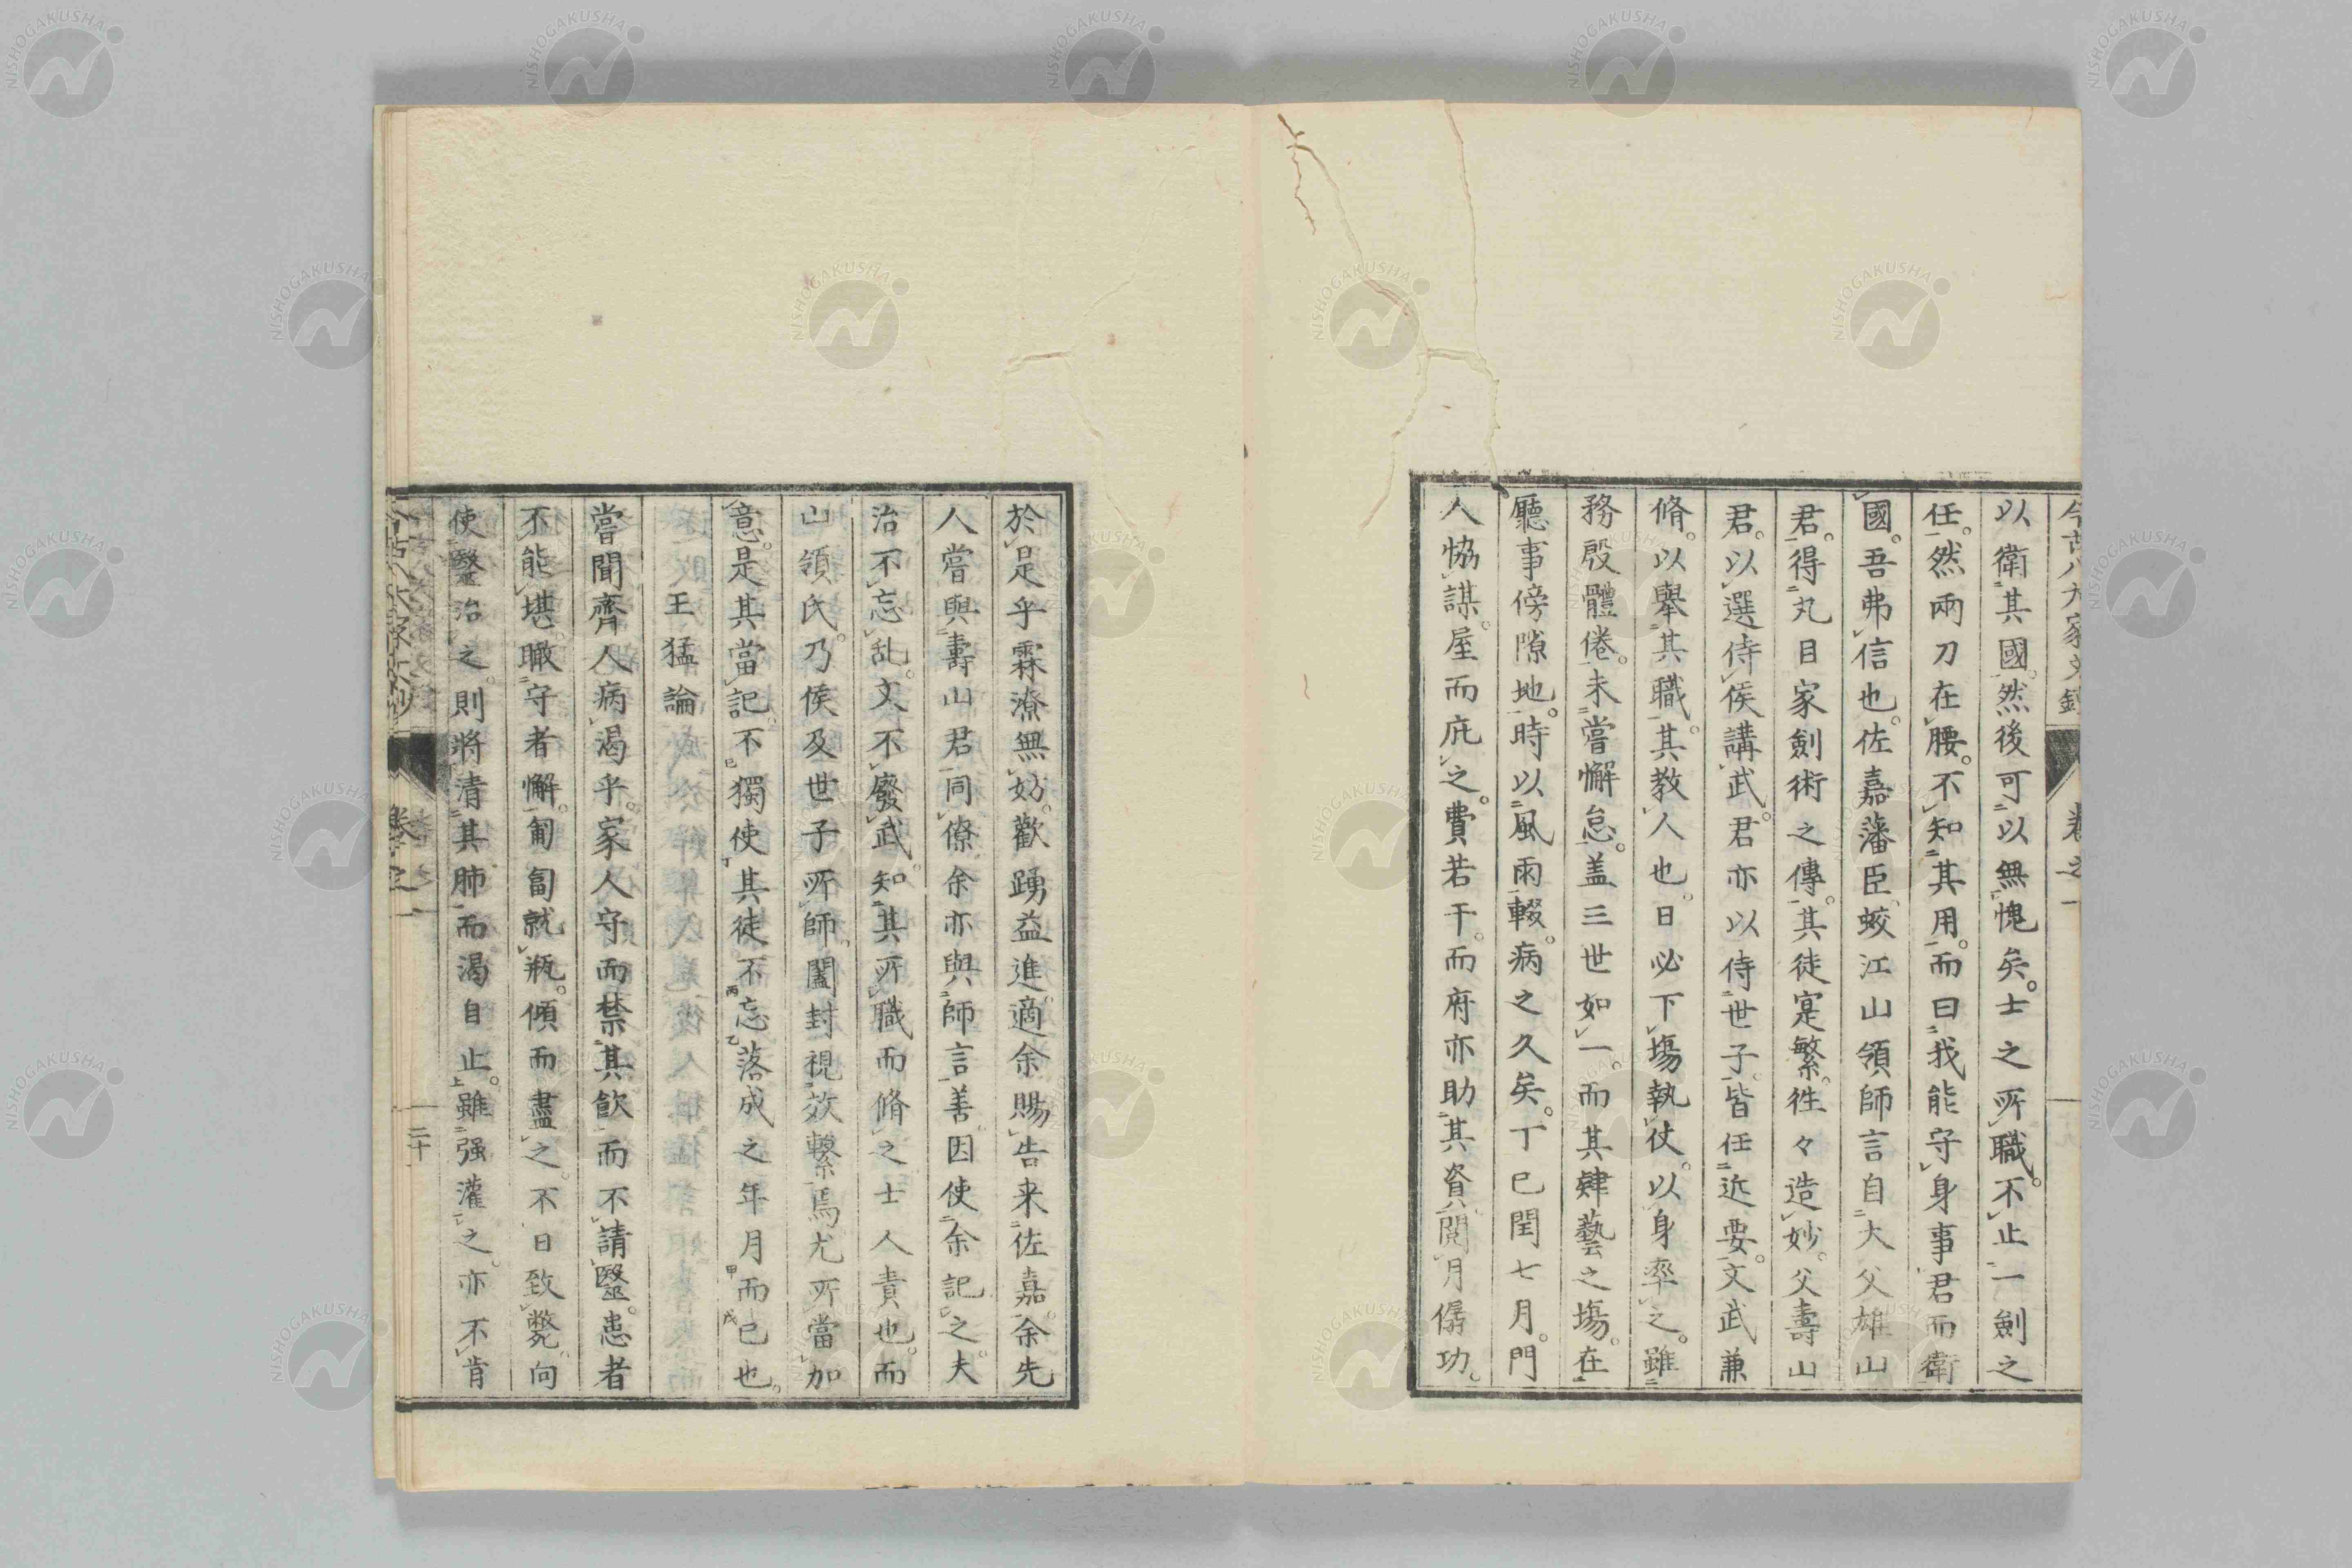 以衛其國。然後可以無愧矣。士之所職。不止一劍之
任。然兩刀在腰。不知其用。而曰我能守身事君而衛
國。吾弗信也。佐嘉藩臣蛟江山領師言自大父雄山
君。得丸目家劍術之傳。其徒寔繁。徃々造妙。父壽山
君。以選侍侯講武。君亦以侍世子。皆任近要。文武兼
脩。以舉其職。其教人也。日必下塲執仗。以身率之。雖
務殷體倦。未嘗懈怠。盖三世如一。而其肄藝之塲。在
廳事傍隙地。時以風雨輟。病之久矣。丁巳閏七月。門
人恊謀。屋而庇之。費若干。而府亦助其資。閱月僝功。
於是乎霖潦無妨。歡踴益進。適余賜告来佐嘉。余先
人嘗與壽山君同僚。余亦與師言善。因使余記之。夫
治不忘乱。文不廢武。知其所職而脩之。士人責也。而
山領氏。乃侯及世子所師。闔封視效繫焉。尤所當加
意。是其當記。不獨使其徒不忘落成之年月而已也。
王猛論
嘗聞齊人病渴乎。家人守而禁其飲。而不請醫。患者
不能堪。瞰守者懈。匍匐就瓶。傾而盡之。不日致斃。向
使醫治之。則將清其肺。而渴自止。雖强灌之。亦不肯
二十
NISHOGAKUSHA